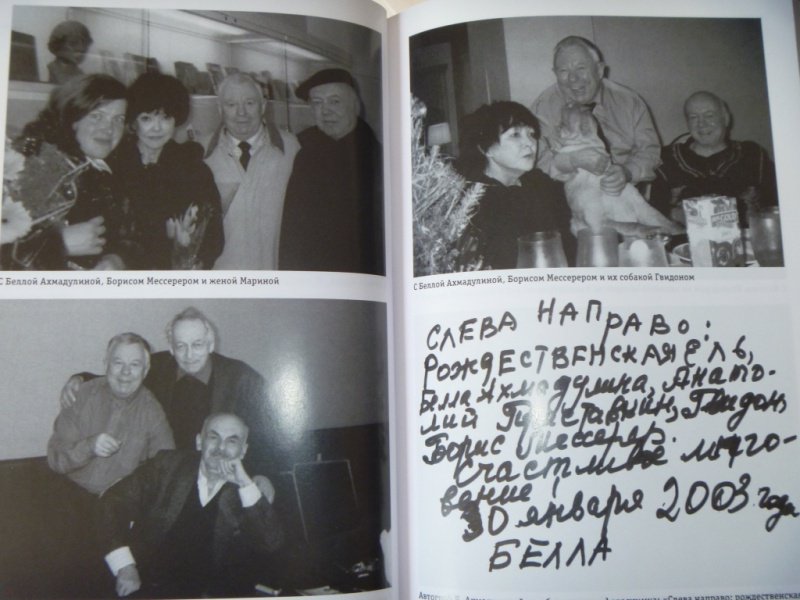 С Беллой Ахмадулиной, Борисом Мессерером и женой Мариной
С Беллой Ахмадулиной, Борисом Мессерером и их собакой Гвидоном
СЛЕВА НАПРАВО:
РОЖДЕСТВЕНСКАЯ ЕЛЬ,
Белла Ахмадулина, Анато-
лий Приставкин, Гвидон,
Борис Мессерер.
Счастливое мгно-
вение!
30 января 2003 года
БЕЛЛА
«Слева направо: рождественская